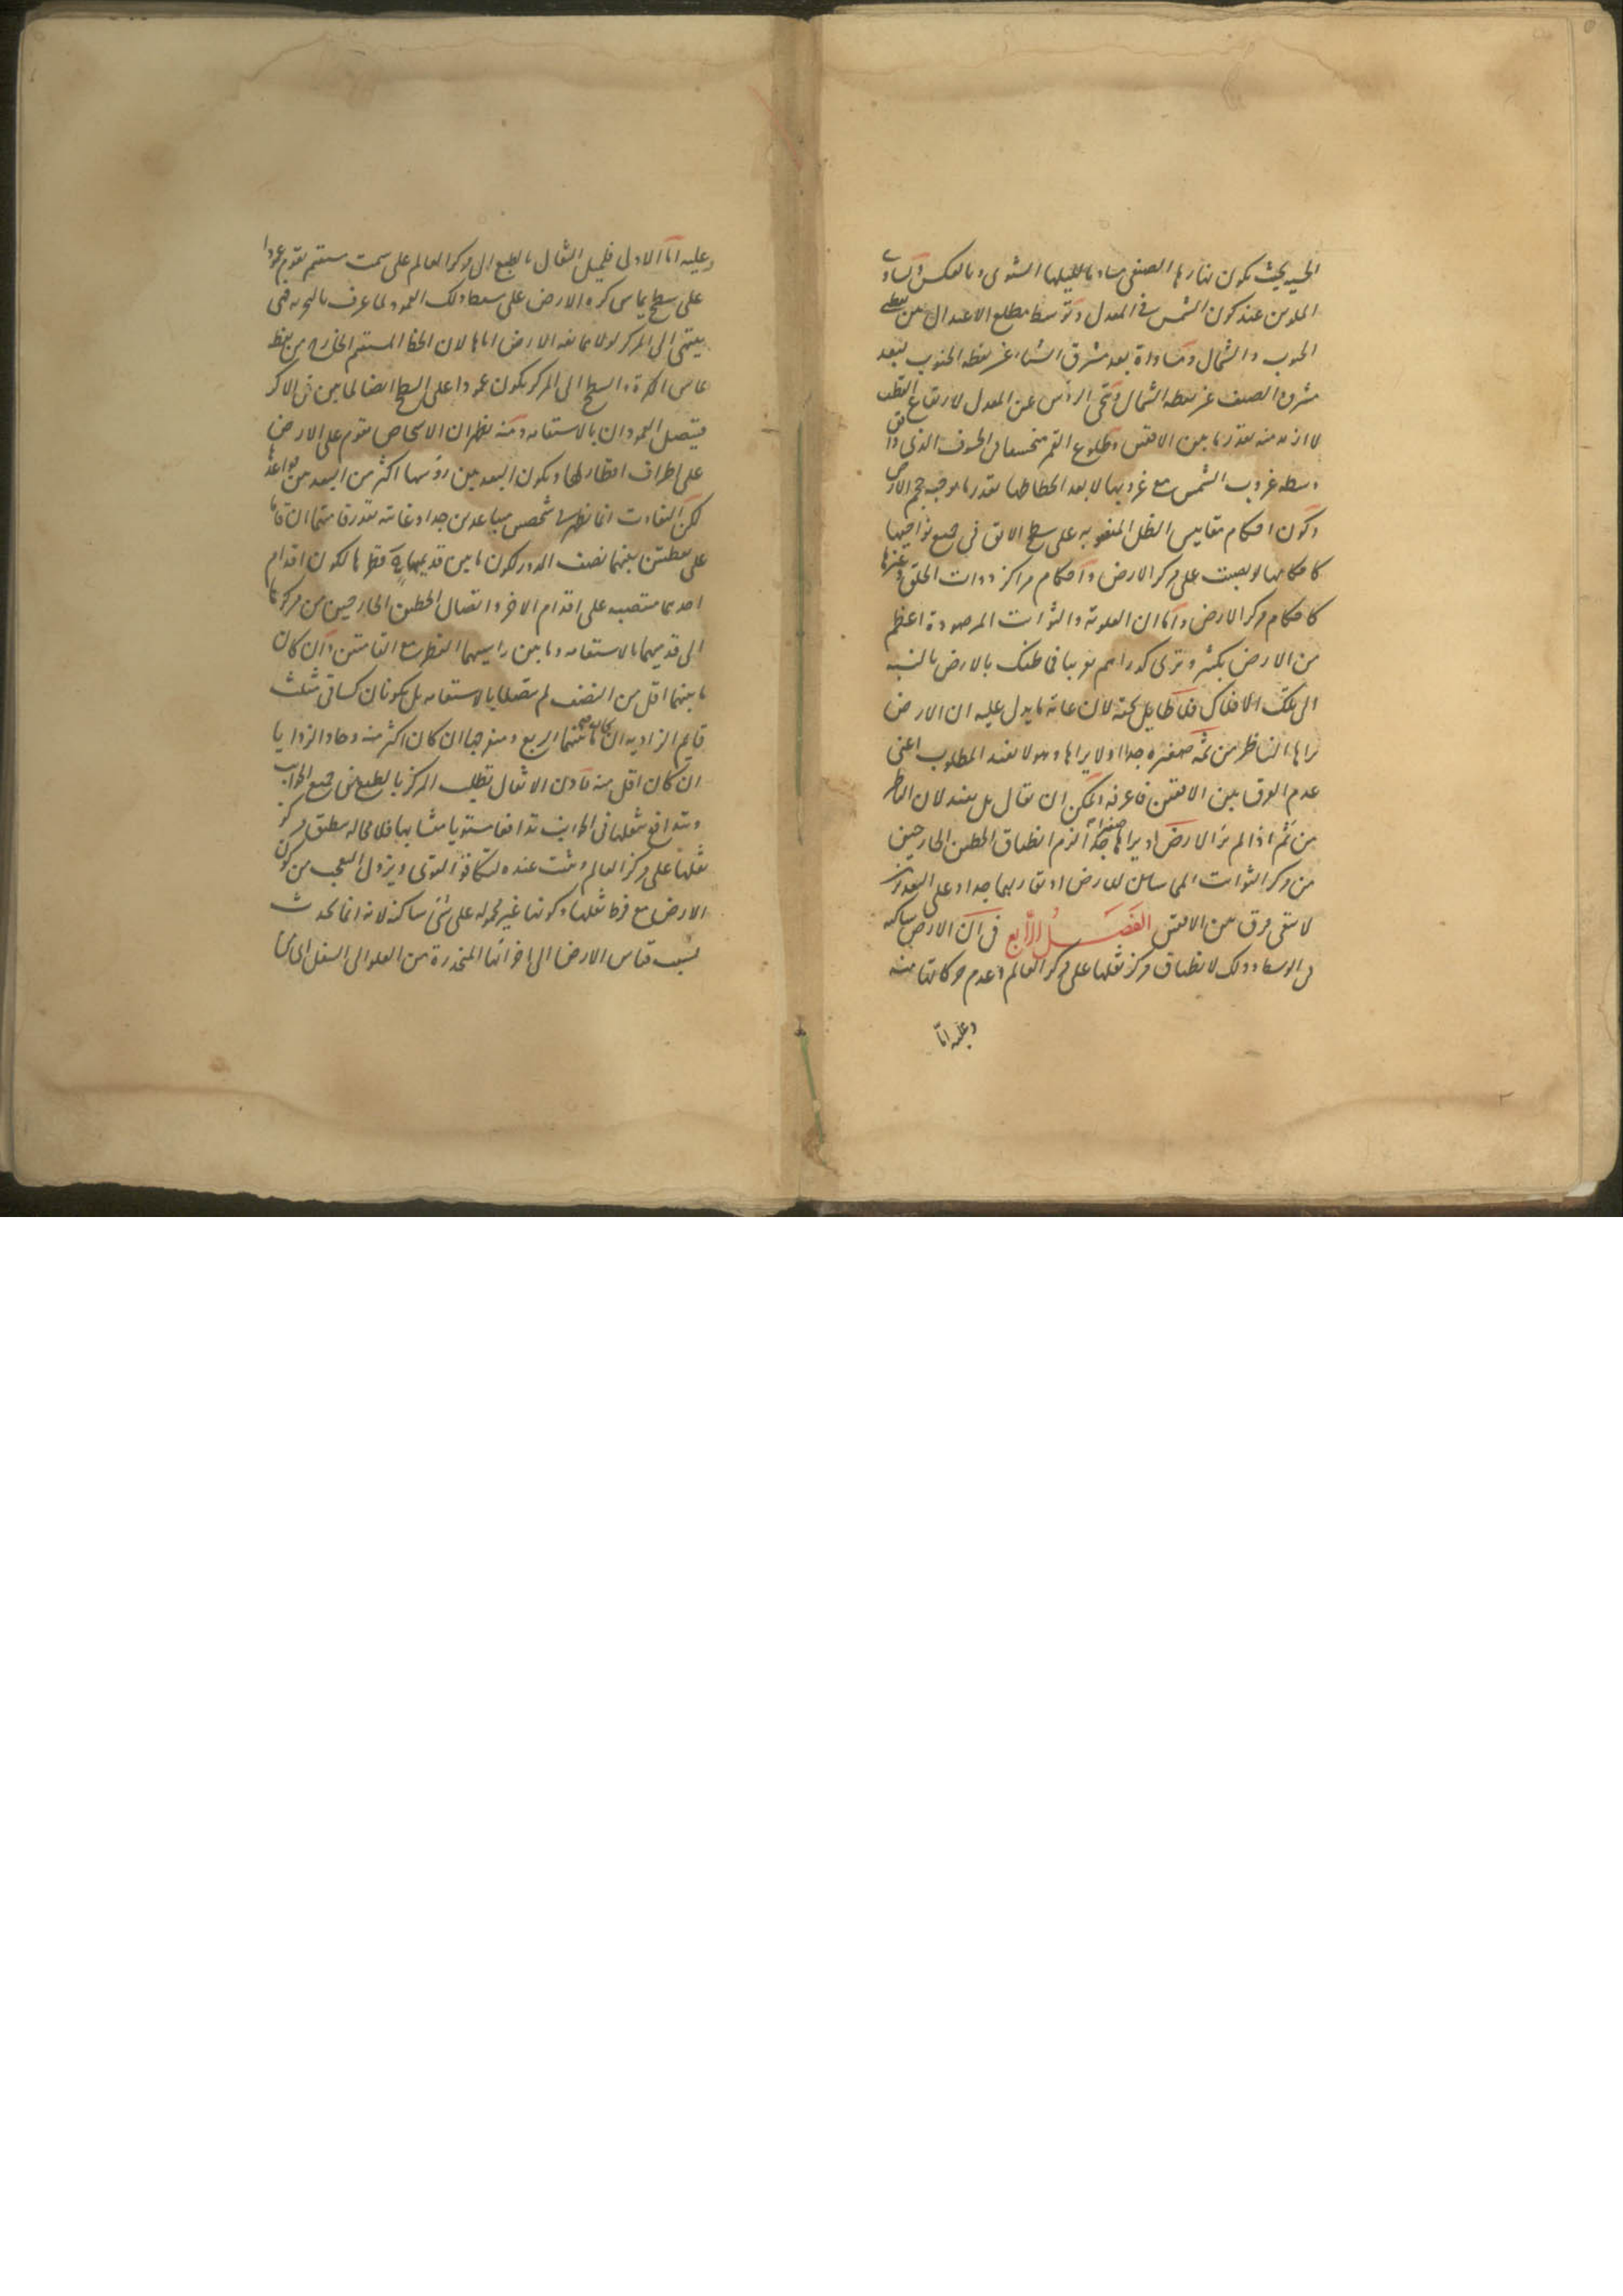 الحسية بحيث يكون نهارها الصيفي مساويا لليلها الشتوي وبالعكس وتساوي
الملوين عند كون الشمس في المعدل وتوسط مطلع الاعتدال بين نقطتي
الجنوب والشمال ومساواة بعد مشرق الشتاء عن نقطة الجنوب لبعد
مشرق الصيف عن نقطة الشمال وتنحي الرؤس عن المعدل لارتفاع القطب
لا ازيد منه بقدر ما بين الافقين وطلوع القمر منخسفا في الخسوف الذي وافق
وسطه غروب الشمس مع غروبها لا بعد انحطاطها بقدر ما يوجبه حجم الارض
وكون احكام مقاييس الظل المنصوبة على سطح الافق في جميع نواحيها
كاحكامها لو نصبت على مركز الارض واحكام مراكز ذوات الحلق وغيرها
كاحكام مركز الارض واما ان العلوية والثوابت المرصودة اعظم
من الارض بكثير وترى كدراهم فما ظنك بالارض بالنسبة
الى تلك الافلاك فلا طايل تحته لان غاية ما يدل عليه ان الارض
يراها الناظر من ثمه صغيرة جدا او لا يراها وهو لا يفيد المطلوب اعني
عدم الفرق بين الافقين فاعرفه ويمكن ان يقال بل يفيد لان الناظر
من ثم اذا لم ير الارض او يراها صغيرة جدا لزم انطباق الخطين الخارجين
من مركز الثوابت المماسين للارض او تقاربهما جدا وعلى التقديرين
لا يبقى فرق بين الافقين الفصل الرابع في ان الارض ساكنة
في الوسط وذلك لانطباق مركز ثقلها على مركز العالم وعدم حركاتها منه
وعليه اما
وعليه اما الاول فلميل الثقال بالطبع الى مركز العالم على سمت مستقيم يقوم عمودا
على سطح يماس كرة الارض على مسقط ذلك العمود لما عرف بالتجربة فهي
ينتهي الى المركز لولا ممانعة الارض اياها لان الخط المستقيم الخارج من نقطة
تماس الكرة والسطح الى المركز يكون عمودا على السطح ايضا لما بين في الاكر
فيتصل العمودان بالاستقامة ومنه يظهر ان الاشخاص يقوم على الارض
على اطراف اقطار لها ويكون البعد بين رؤسها اكثر من البعد بين قواعدها
لكن التفاوت انما يظهر في شخصين متباعدين جدا وغايته بقدر قامتهما ان قاما
على نقطتين بينهما نصف الدور لكون ما بين قدميهما قطرها لكون اقدام
احدهما منتصبة على اقدام الاخر واتصال الخطين الخارجين من مركزها
الى قدميهما بالاستقامة وما بين راسيهما القطر مع القامتين وان كان
ما بينهما اقل من النصف لم يتصلا بالاستقامة بل يكونان كساقي مثلث
قايم الزاوية ان كان ما بينهما الربع ومنفرجها ان كان اكثر منه وحاد الزوايا
ان كان اقل منه ولان الاثقال تطلب المركز بالطبع من جميع الجوانب
وتدافع بثقلها في الجوانب تدافعا مستويا متشابها فلا محالة ينطبق مركز
ثقلها على مركز العالم ويثبت عنده لتكافؤ القوى ويزول التعجب من كون
الارض مع فرط ثقلها وكونها غير محمولة على شئ ساكنة لانه انما يحدث
بسبب قياس الارض الى اجزائها المنحدرة من العلو الى السفل الى ان